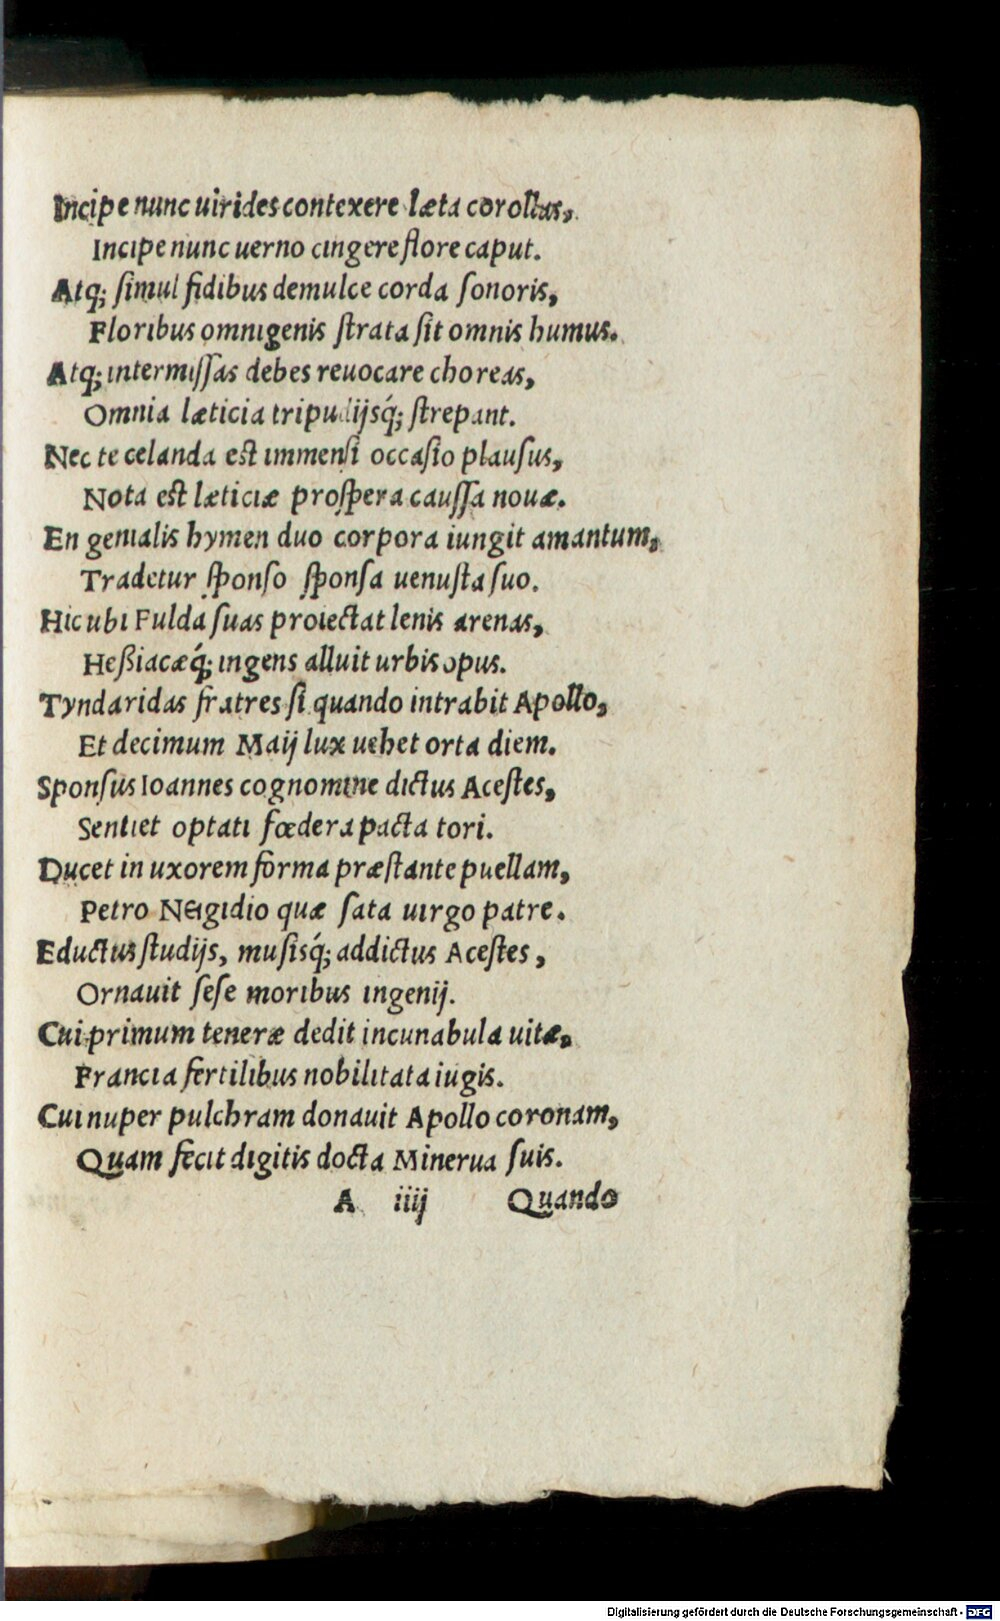 Incipe nunc uirides contexere læta corollas,
Incipe nunc uerno cingere flore caput.
Atq; ſimul fidibus demulce corda ſonoris,
Floribus omnigenis ſtrata ſit omnis humus.
Atq; intermiſſas debes reuocare choreas,
Omnia læticia tripudijsq́; ſtrepant.
Nec te celanda est immenſi occaſio plauſus,
Nota est læticiæ proſpera cauſſa nouæ.
En genialis hymen duo corpora iungit amantum,
Tradetur ſponſo ſponſa uenuſta ſuo.
Hic ubi Fulda ſuas proiectat lenis arenas,
Heßiacæq́; ingens alluit urbis opus.
Tyndaridas fratres ſi quando intrabit Apollo,
Et decimum Maij lux uehet orta diem.
Sponſus Ioannes cognomine dictus Aceſtes,
Sentiet optati fœdera pacta tori.
Ducet in uxorem forma præſtante puellam,
Petro Neigidio quæ ſata uirgo patre.
Eductus ſtudijs, muſisq́; addictus Aceſtes,
Ornauit ſeſe moribus ingenij.
Cui primum teneræ dedit incunabula uitæ,
Francia fertilibus nobilitata iugis.
Cui nuper pulchram donauit Apollo coronam,
Quam fecit digitis docta Minerua ſuis.
A iiij Quando
Digitalisierung gefördert durch die Deutsche Forschungsgemeinschaft - DFG